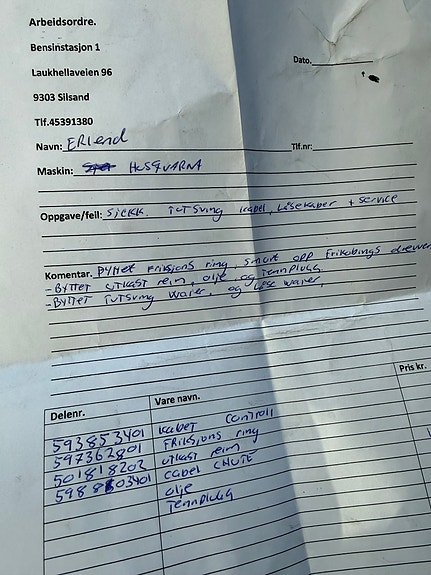 Arbeidsordre.
Bensinstasjon 1
Dato.
Laukhellaveien 96
9303 Silsand
Tlf.45391380
Navn: Erlend
Tlf.nr:
Maskin: HUSQVARNA
Oppgave/feil: Sjekk. Tutsving kabel, Låsekabel + service
Komentar. Byttet Friksjons ring, smurt opp Frikobings
- Byttet utkast reim, olje og Tennplugg
- Byttet Tutsving waier, og Låse waier,
Delenr. Vare navn. Pris kr.
593853401 kabel controll
597362801 Friksjons ring
501818202 utkast reim
598803401 cabel CHUTE
olje
Tennplugg